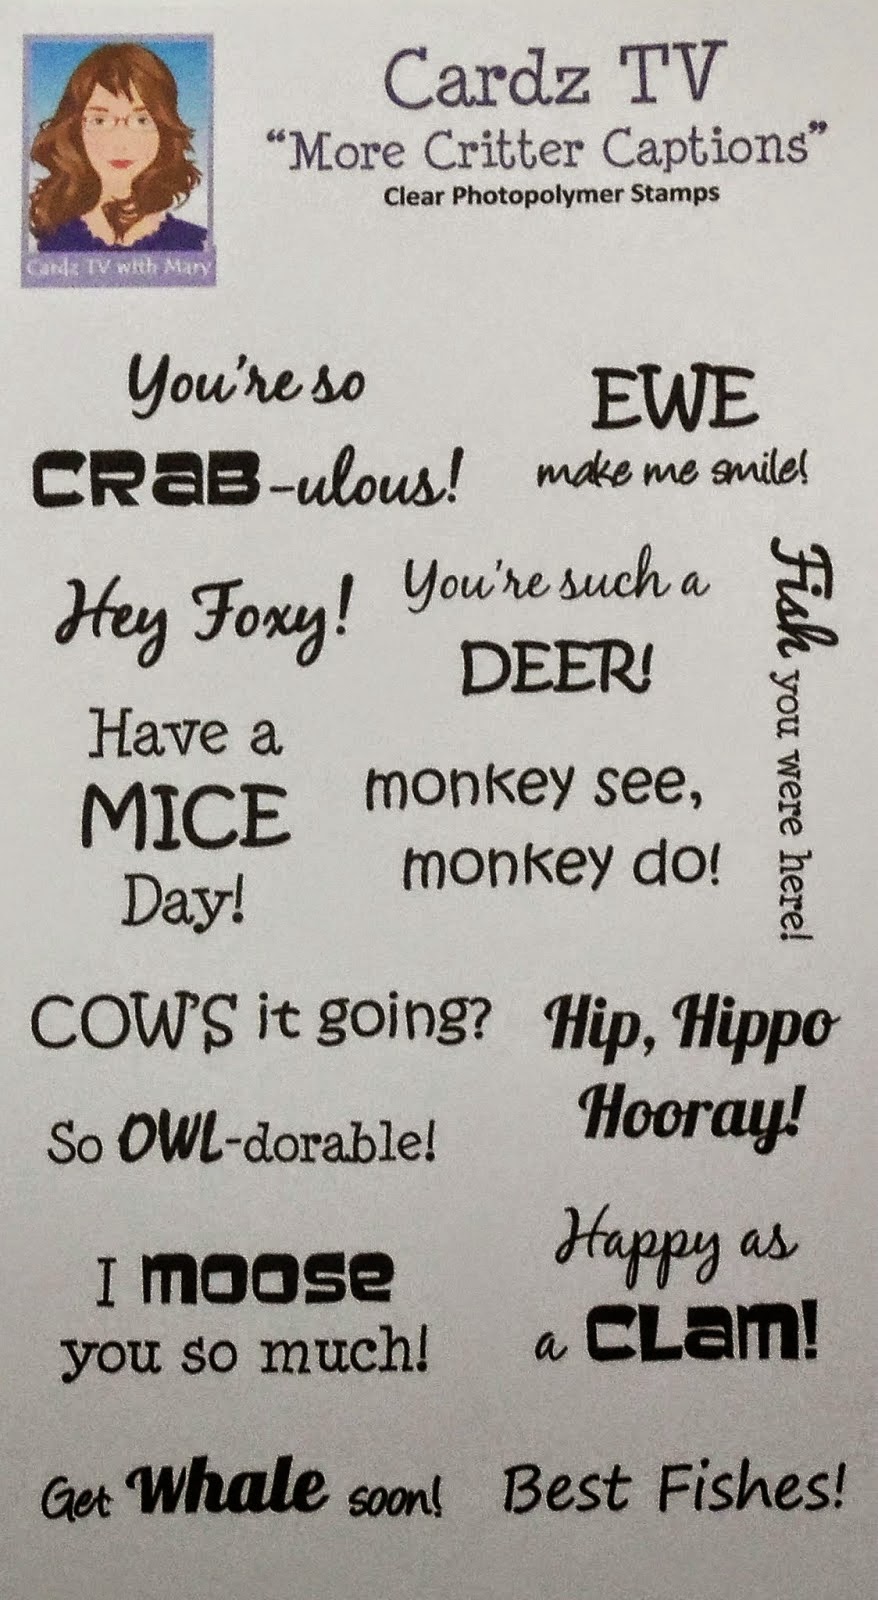 Cardz TV with Mary
Cardz TV
“More Critter Captions”
Clear Photopolymer Stamps
You're so
CRAB-ulous!
EWE
make me smile!
Hey Foxy!
You're such a
DEER!
Fish you were here!
Have a
MICE
Day!
monkey see,
monkey do!
COW'S it going?
Hip, Hippo
Hooray!
So OWL-dorable!
I moose
you so much!
Happy as
a CLam!
Get Whale soon!
Best Fishes!